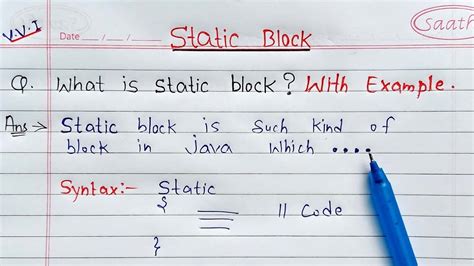 V.V.I
Date __/__/__
Saath
Static Block
Q. What is static block? With Example.
Ans → Static block is such kind of
block in java which ....
Syntax:- Static
{
// Code
}